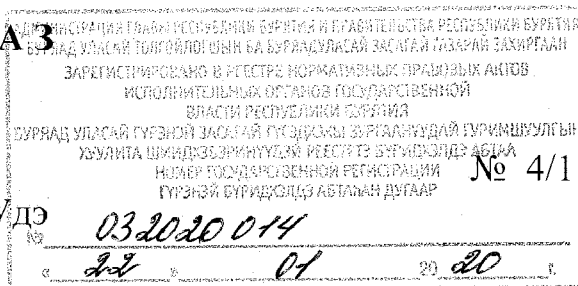 АДМИНИСТРАЦИЯ ГЛАВЫ РЕСПУБЛИКИ БУРЯТИЯ И ПРАВИТЕЛЬСТВА РЕСПУБЛИКИ БУРЯТИЯ
БУРЯАД УЛАСАЙ ТОЛГОЙЛОГШЫН БА БУРЯАД УЛАСАЙ ЗАСАГАЙ ГАЗАРАЙ ЗАХИРГААН
А З
ЗАРЕГИСТРИРОВАНО В РЕЕСТРЕ НОРМАТИВНЫХ ПРАВОВЫХ АКТОВ
ИСПОЛНИТЕЛЬНЫХ ОРГАНОВ ГОСУДАРСТВЕННОЙ
ВЛАСТИ РЕСПУБЛИКИ БУРЯТИЯ
БУРЯАД УЛАСАЙ ГҮРЭНЭЙ ЗАСАГАЙ ГҮЙСЭДХЭХЫ ЗУРГААНУУДАЙ ГУРИМШУУЛГЫН
ХУУЛИТА ШИИДХЭБЭРИНҮҮДЭЙ РЕЕСТРТЭ БҮРИДХЭЛДЭ АБТАА
НОМЕР ГОСУДАРСТВЕННОЙ РЕГИСТРАЦИИ
№ 4/1
ГҮРЭНЭЙ БҮРИДХЭЛДЭ АБТАҺАН ДУГААР
Удэ
№ 032020014
« 22 » 01 20 20 г.